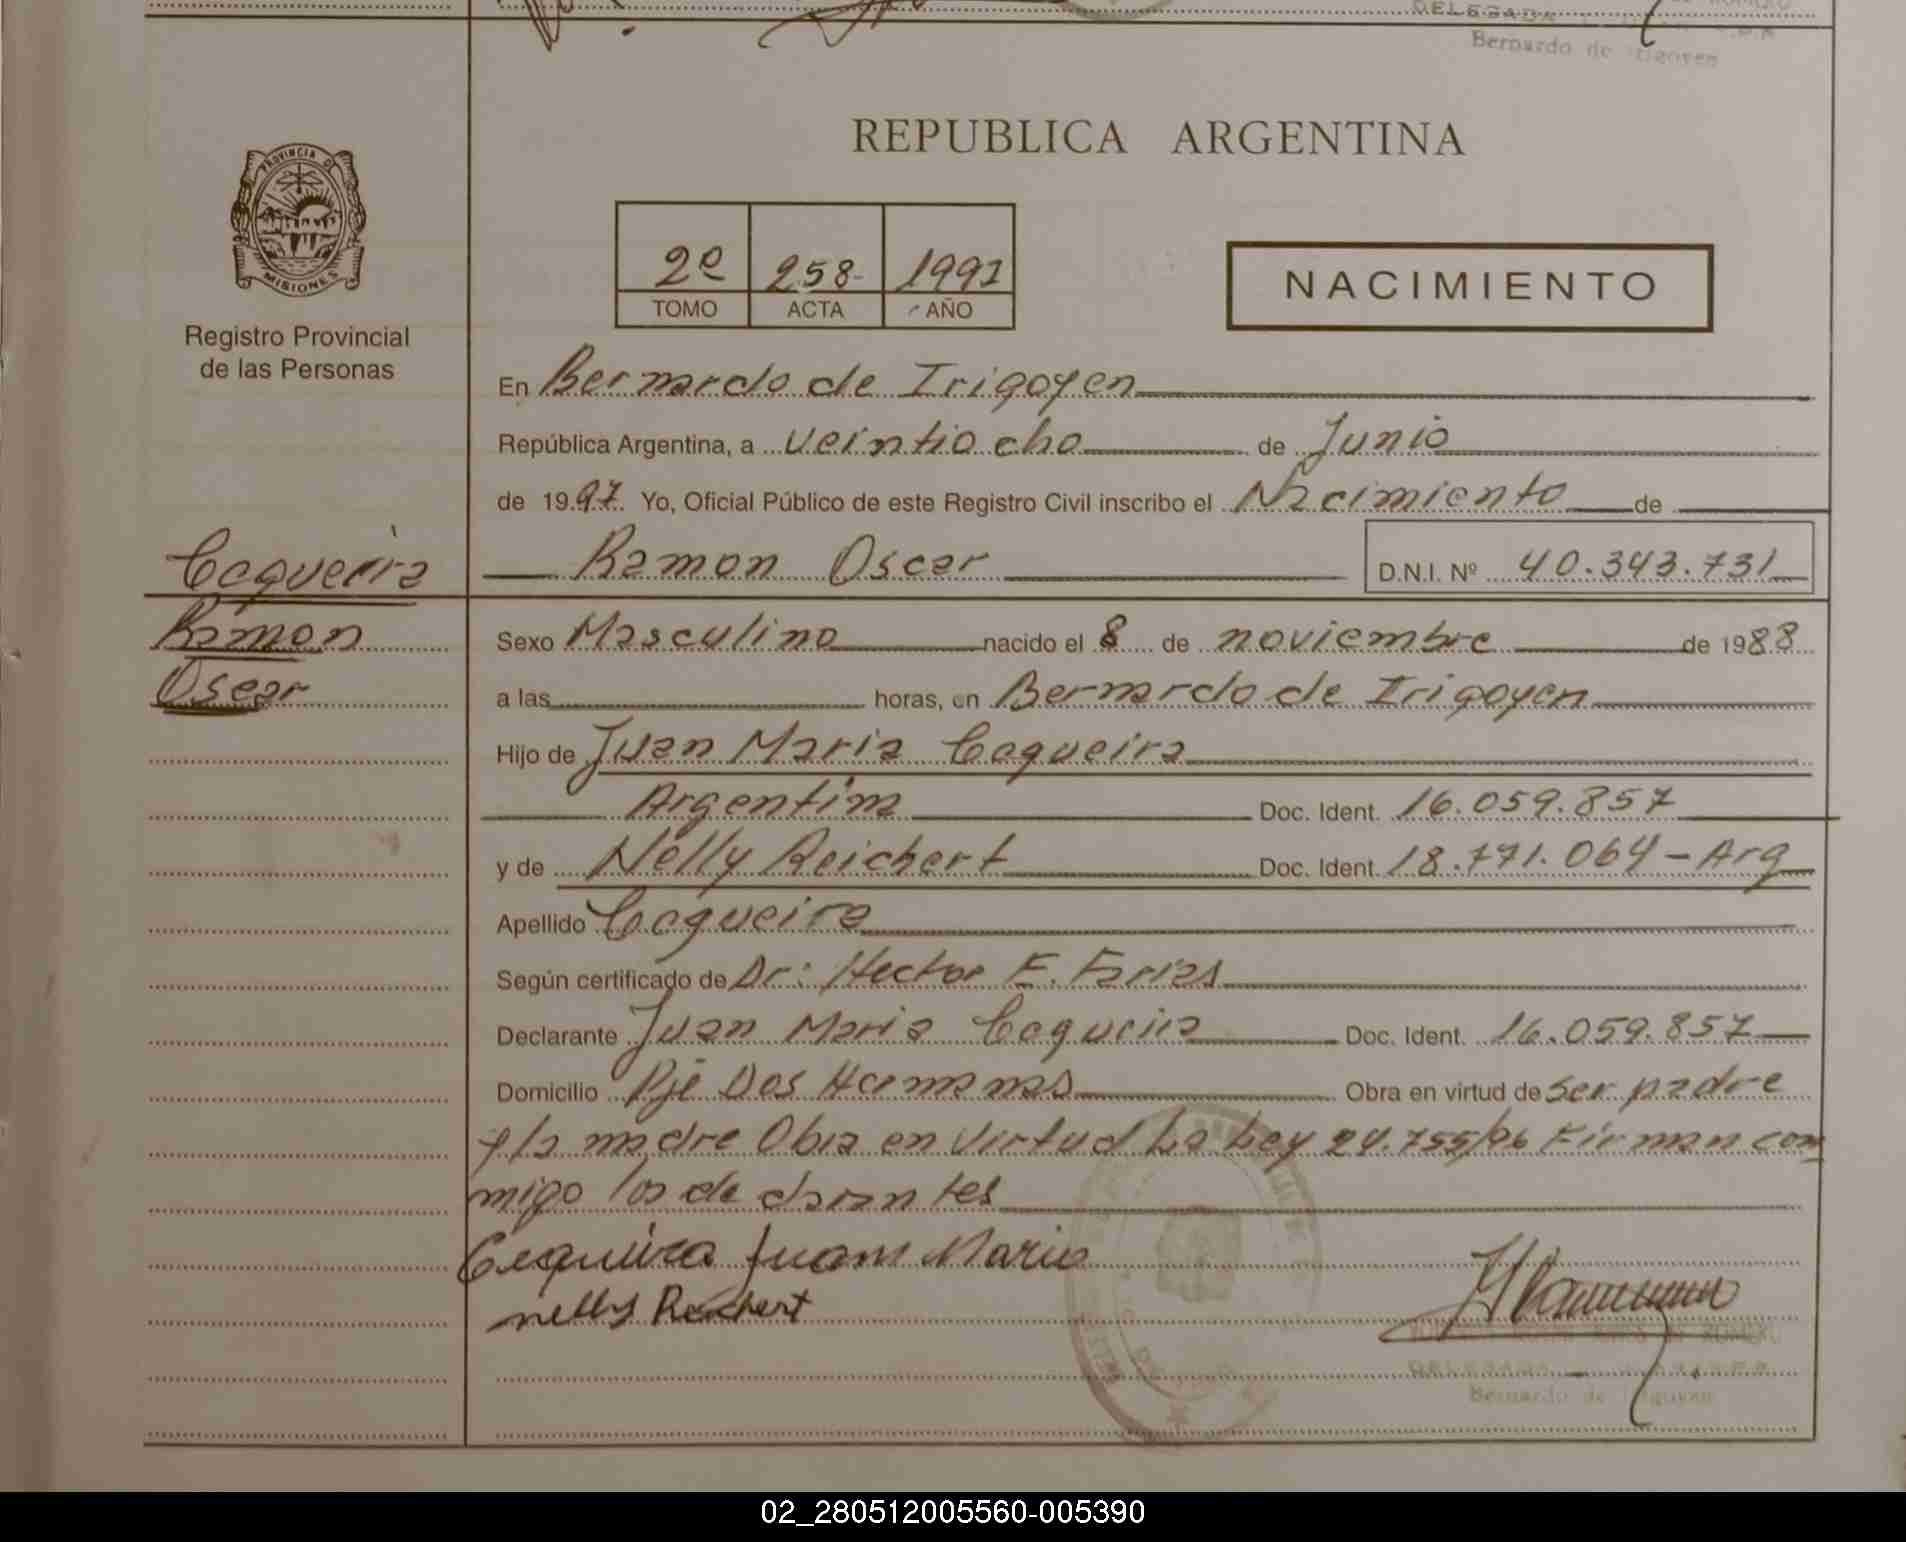 DELEGADA
Bernardo de Irigoyen
REPUBLICA ARGENTINA
PROVINCIA D
MISIONES
Registro Provincial
de las Personas
2º 258- 1997
TOMO ACTA AÑO
NACIMIENTO
En Bernardo de Irigoyen
República Argentina, a veintiocho de Junio
de 1997. Yo, Oficial Público de este Registro Civil inscribo el Nacimiento de
Ceqveira Ramon Oscar D.N.I. Nº 40.343.731
Ramon Sexo Masculino nacido el 8 de noviembre de 1988
Oscar a las horas, en Bernardo de Irigoyen
Hijo de Juan Maria Ceqveira
Argentina Doc. Ident. 16.059.857
y de Nelly Reichert Doc. Ident. 18.771.064 - Arg
Apellido Ceqveira
Según certificado de Dr: Hector E. Farias
Declarante Juan Maria Ceqveira Doc. Ident. 16.059.857
Domicilio Pje Dos Hermanas Obra en virtud de ser padre
y la madre Obra en virtud La Ley 24.755/96 Firman con
migo los declarantes
Cequeira Juan Maria
nelly Reichert
DELEGADA
Bernardo de Irigoyen
02_280512005560-005390